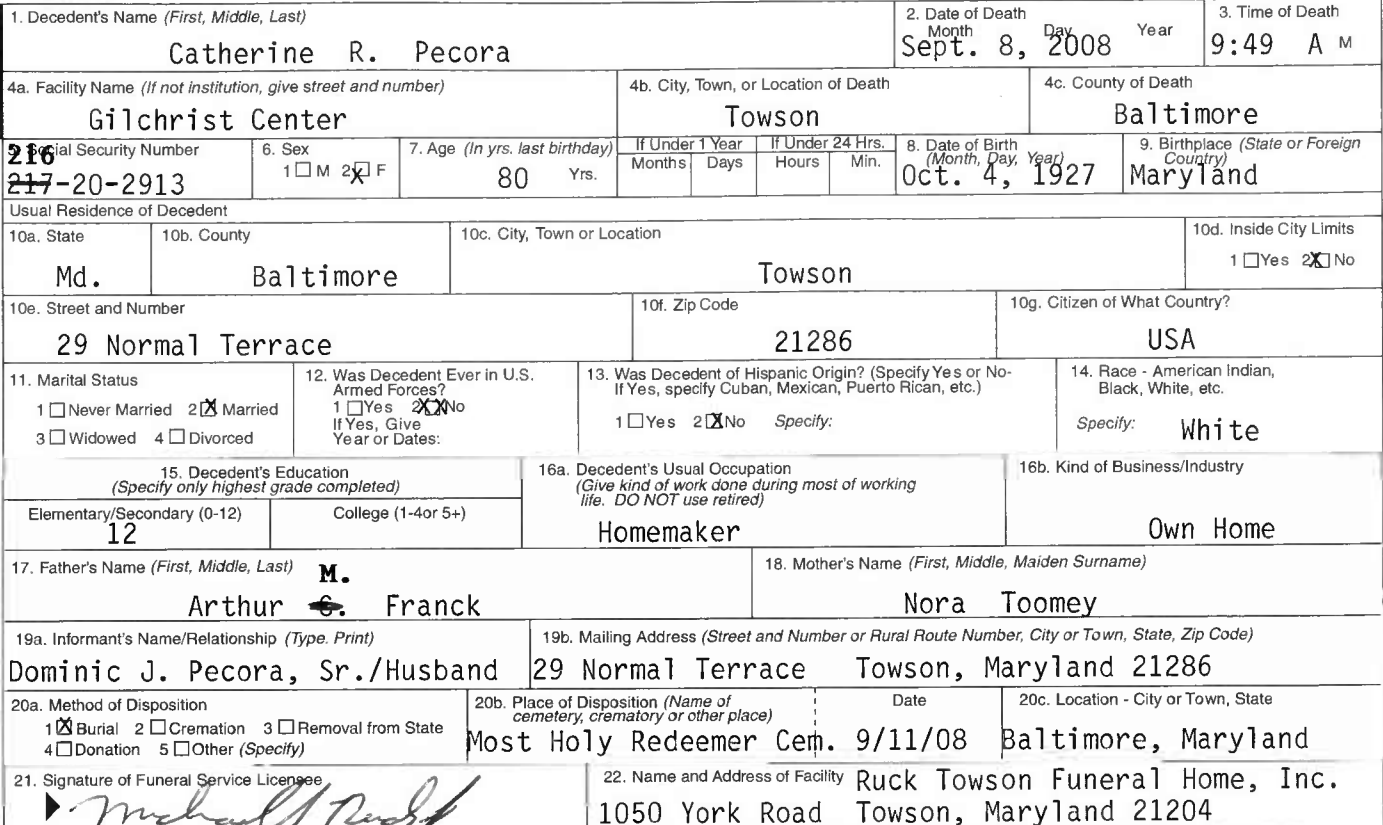 1. Decedent's Name (First, Middle, Last)
Catherine R. Pecora
2. Date of Death
Month Day Year
Sept. 8, 2008
3. Time of Death
9:49 A M
4a. Facility Name (If not institution, give street and number)
Gilchrist Center
4b. City, Town, or Location of Death
Towson
4c. County of Death
Baltimore
5. Social Security Number
216
217-20-2913
6. Sex
1 ☐ M 2 ☒ F
7. Age (In yrs. last birthday)
80 Yrs.
If Under 1 Year
Months Days
If Under 24 Hrs.
Hours Min.
8. Date of Birth
(Month, Day, Year)
Oct. 4, 1927
9. Birthplace (State or Foreign
Country)
Maryland
Usual Residence of Decedent
10a. State
Md.
10b. County
Baltimore
10c. City, Town or Location
Towson
10d. Inside City Limits
1 ☐ Yes 2 ☒ No
10e. Street and Number
29 Normal Terrace
10f. Zip Code
21286
10g. Citizen of What Country?
USA
11. Marital Status
1 ☐ Never Married 2 ☒ Married
3 ☐ Widowed 4 ☐ Divorced
12. Was Decedent Ever in U.S.
Armed Forces?
1 ☐ Yes 2 ☒ No
If Yes, Give
Year or Dates:
13. Was Decedent of Hispanic Origin? (Specify Yes or No-
If Yes, specify Cuban, Mexican, Puerto Rican, etc.)
1 ☐ Yes 2 ☒ No Specify:
14. Race - American Indian,
Black, White, etc.
Specify: White
15. Decedent's Education
(Specify only highest grade completed)
Elementary/Secondary (0-12) College (1-4or 5+)
12
16a. Decedent's Usual Occupation
(Give kind of work done during most of working
life. DO NOT use retired)
Homemaker
16b. Kind of Business/Industry
Own Home
17. Father's Name (First, Middle, Last) M.
Arthur Franck
18. Mother's Name (First, Middle, Maiden Surname)
Nora Toomey
19a. Informant's Name/Relationship (Type. Print)
Dominic J. Pecora, Sr./Husband
19b. Mailing Address (Street and Number or Rural Route Number, City or Town, State, Zip Code)
29 Normal Terrace Towson, Maryland 21286
20a. Method of Disposition
1 ☒ Burial 2 ☐ Cremation 3 ☐ Removal from State
4 ☐ Donation 5 ☐ Other (Specify)
20b. Place of Disposition (Name of
cemetery, crematory or other place)
Most Holy Redeemer Cem.
Date
9/11/08
20c. Location - City or Town, State
Baltimore, Maryland
21. Signature of Funeral Service Licensee
22. Name and Address of Facility Ruck Towson Funeral Home, Inc.
1050 York Road Towson, Maryland 21204